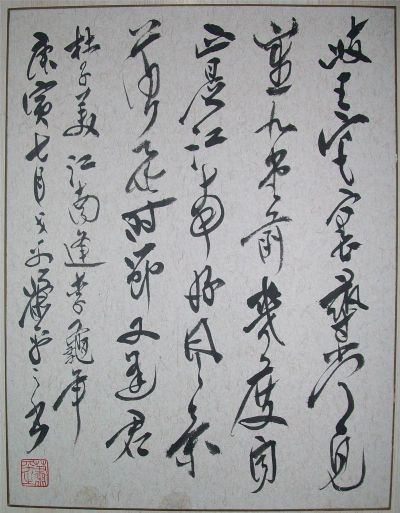 岐王宅裏尋常見
崔九堂前幾度聞
正是江南好風景
落花時節又逢君
杜子美江南逢李龜年
庚寅七月